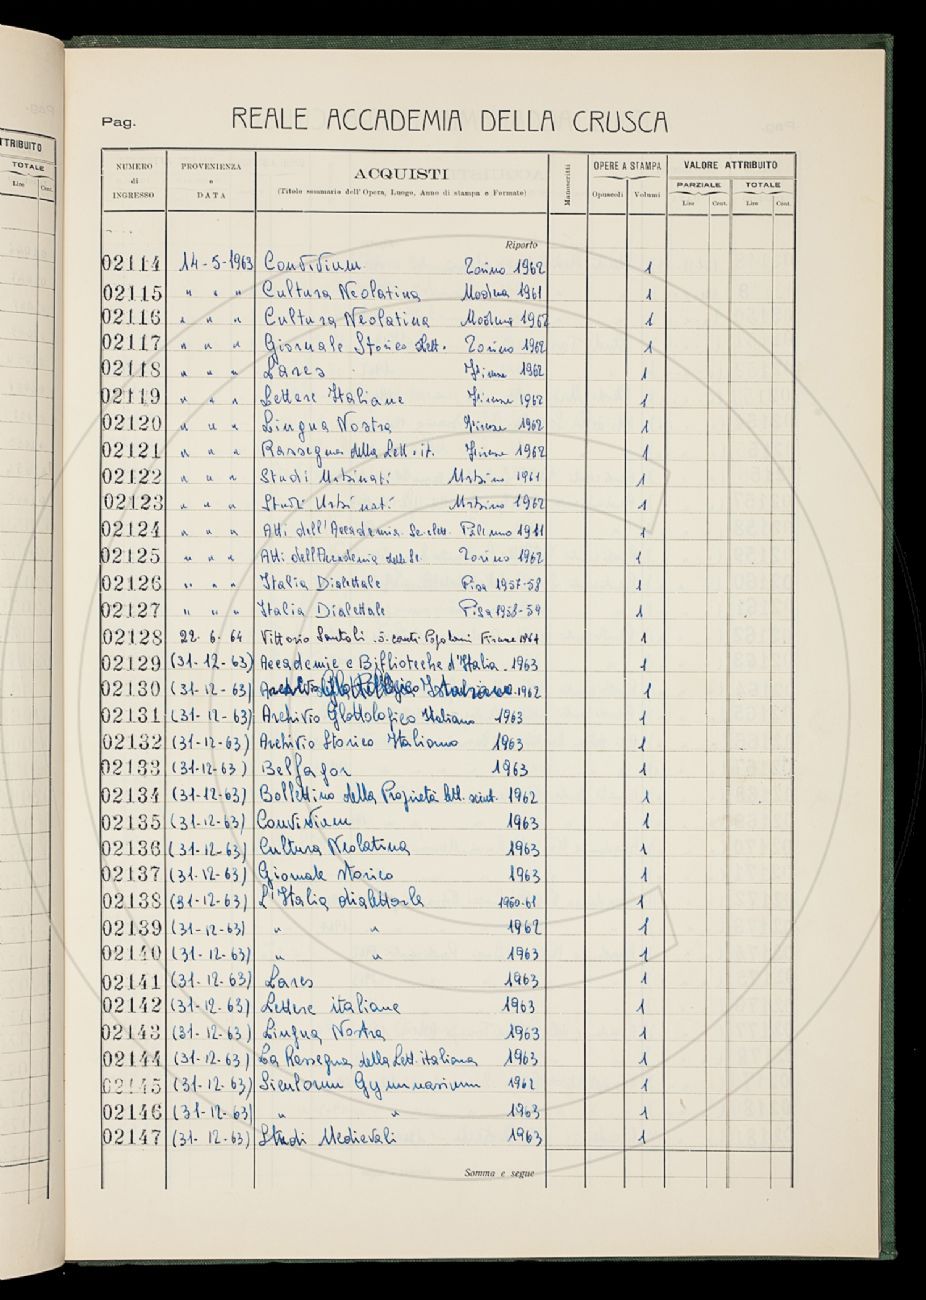 TTRIBUTO
TOTALE
Lire Cent.
Pag. REALE ACCADEMIA DELLA CRUSCA
NUMERO di INGRESSO PROVENIENZA e DATA ACQUISTI (Titolo sommario dell'Opera, Luogo, Anno di stampa e Formato) Manoscritti OPERE A STAMPA Opuscoli Volumi VALORE ATTRIBUITO PARZIALE Lire Cent. TOTALE Lire Cent.
Riporto
02114 14-5-1963 Convivium Torino 1962 1
02115 " " " Cultura Neolatina Modena 1961 1
02116 " " " Cultura Neolatina Modena 1962 1
02117 " " " Giornale Storico Lett. Torino 1962 1
02118 " " " Lares Firenze 1962 1
02119 " " " Lettere Italiane Firenze 1962 1
02120 " " " Lingua Nostra Firenze 1962 1
02121 " " " Rassegna della Lett. it. Firenze 1962 1
02122 " " " Studi Urbinati Urbino 1961 1
02123 " " " Studi Urbinati Urbino 1962 1
02124 " " " Atti dell'Accademia Sc. lett. Palermo 1
02125 " " " Atti dell'Accademia delle Sc. Torino 1962 1
02126 " " " Italia Dialettale Pisa 1957-58 1
02127 " " " Italia Dialettale Pisa 1958-59 1
02128 22. 6. 64 Vittorio Santoli. 5 canti Popolari Firenze 1
02129 (31-12-63) Accademie e Biblioteche d'Italia. 1963 1
02130 (31-12-63) Italiano 1962 1
02131 (31-12-63) Archivio Glottologico Italiano 1963 1
02132 (31-12-63) Archivio Storico Italiano 1963 1
02133 (31-12-63) Belfagor 1963 1
02134 (31-12-63) Bollettino della Proprietà lett. scient. 1962 1
02135 (31-12-63) Convivium 1963 1
02136 (31-12-63) Cultura Neolatina 1963 1
02137 (31-12-63) Giornale storico 1963 1
02138 (31-12-63) L'Italia dialettale 1960-61 1
02139 (31-12-63) " " 1962 1
02140 (31-12-63) " " 1963 1
02141 (31-12-63) Lares 1963 1
02142 (31-12-63) Lettere italiane 1963 1
02143 (31-12-63) Lingua Nostra 1963 1
02144 (31-12-63) La Rassegna della Lett. italiana 1963 1
02145 (31-12-63) Siculorum Gymnasium 1962 1
02146 (31-12-63) " " 1963 1
02147 (31-12-63) Studi Medievali 1963 1
Somma e segue